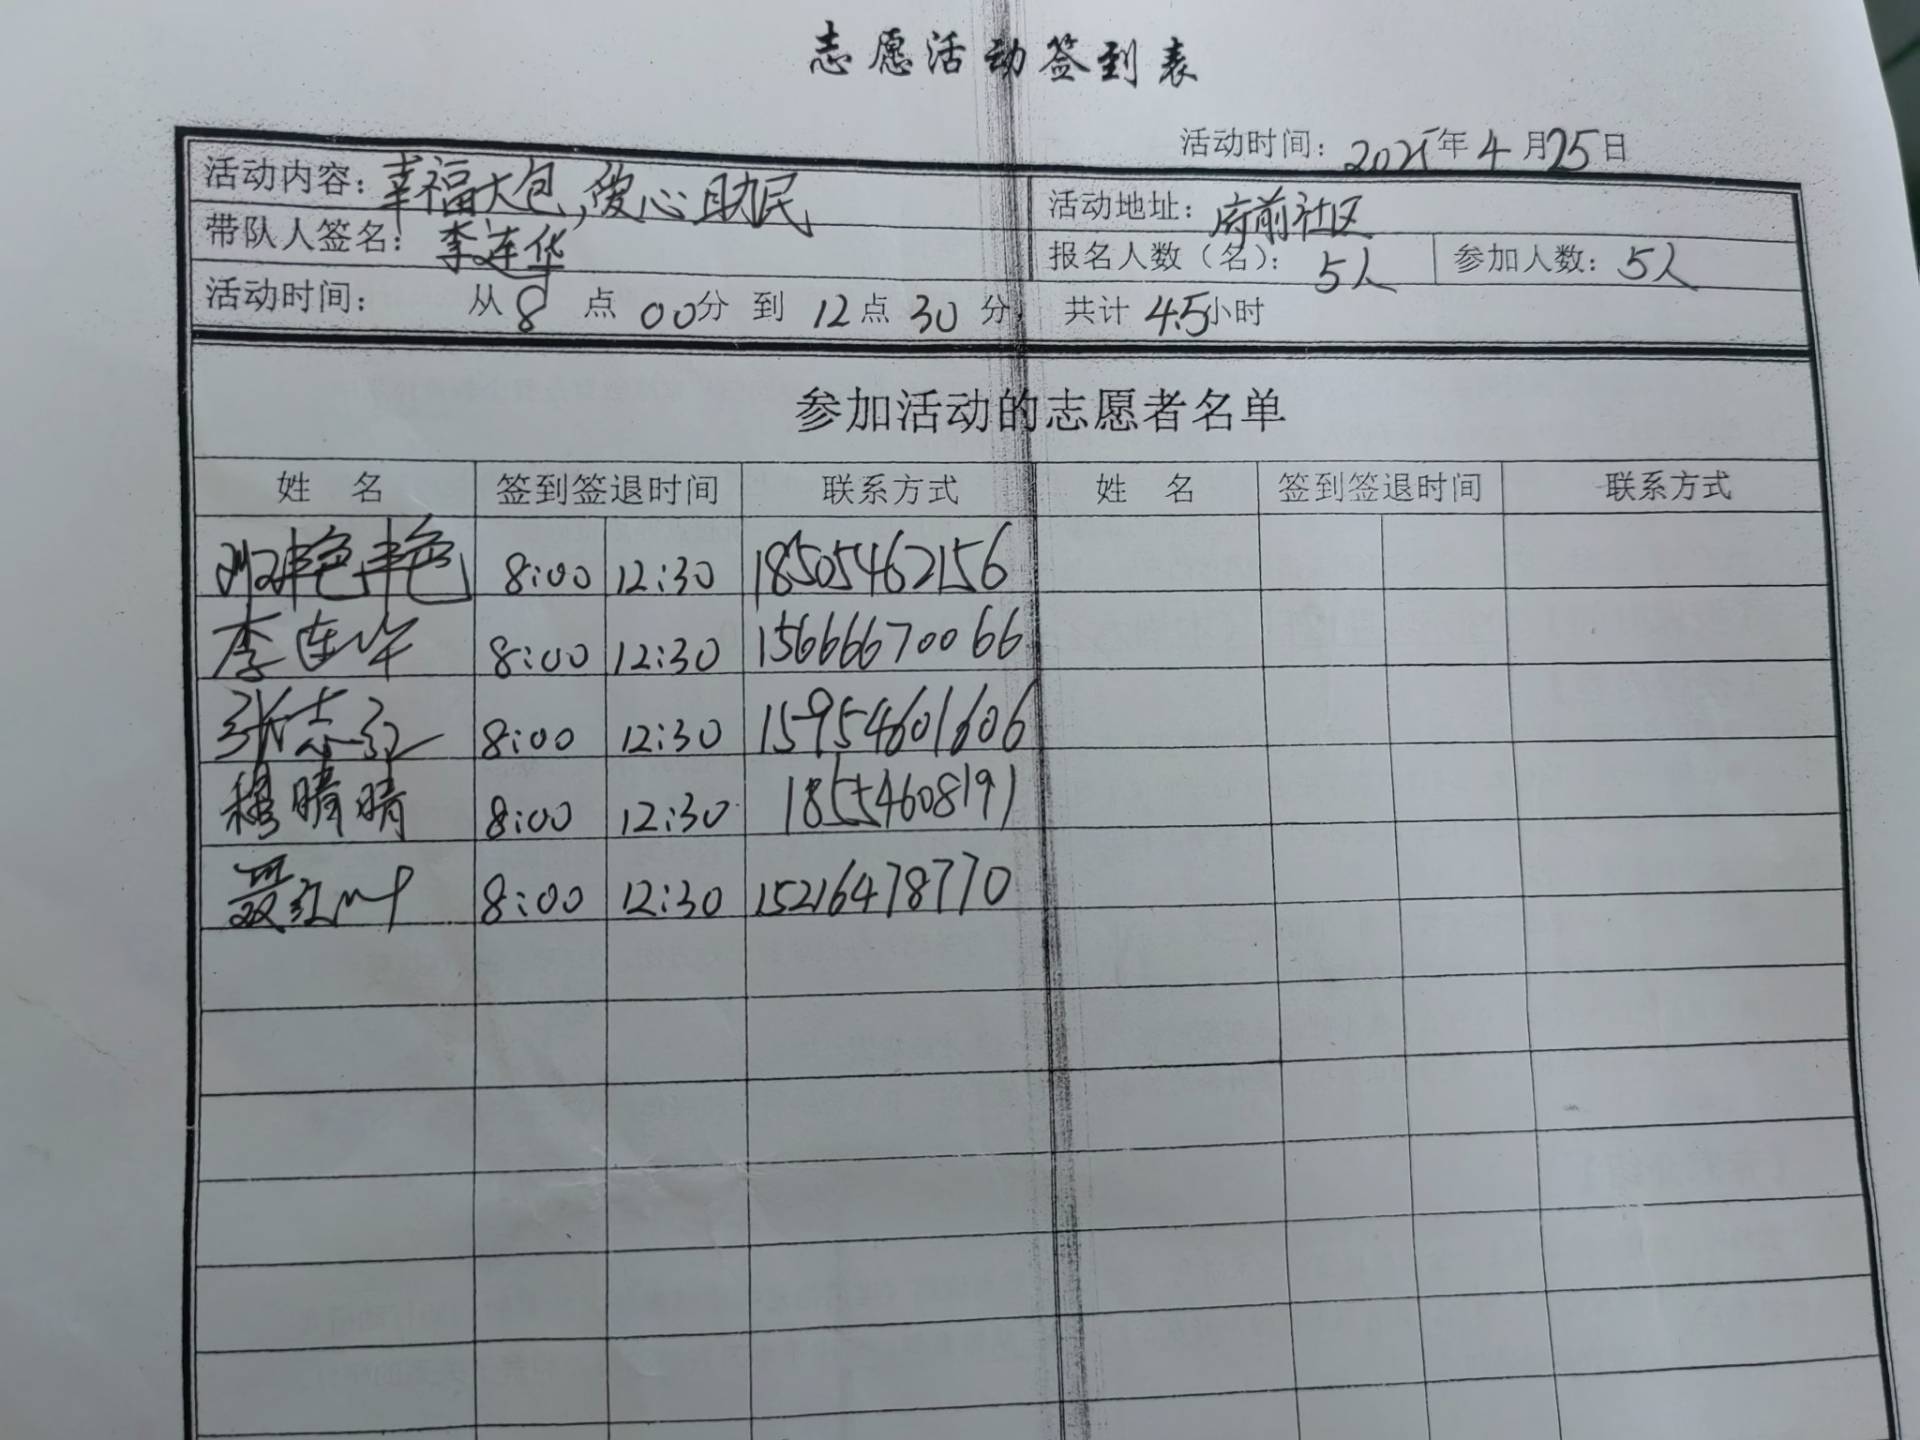 志愿活动签到表
活动时间：2025年4月25日
活动内容：幸福大包，爱心助民
活动地址：府前社区
带队人签名：李连华
报名人数（名）：5人 参加人数：5人
活动时间： 从8点00分到12点30分，共计4.5小时
参加活动的志愿者名单
姓 名 签到签退时间 联系方式 姓 名 签到签退时间 联系方式
8:00 12:30 18505462156
李连华 8:00 12:30 15666670066
张志红 8:00 12:30 15954601606
穆晴晴 8:00 12:30 18554608191
聂红叶 8:00 12:30 15216478770